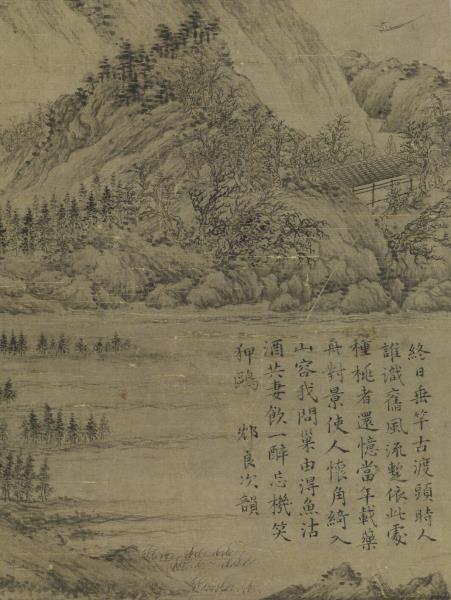 終日垂竿古渡頭時人
誰識舊風流依此處
種桃者還憶當年載藥
舟對景使人懷角綺入
山容我問巢由淂魚沽
酒共妻飲一醉忘機笑
狎鷗 良次韻